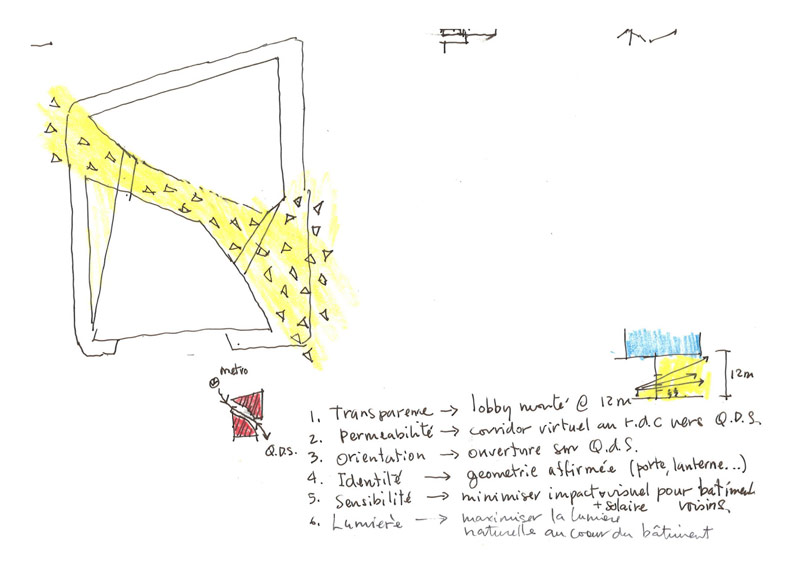 metro
Q.D.S.
12m
1. Transparence → lobby monté @ 12m
2. Permeabilité → corridor virtuel au r.d.c vers Q.D.S.
3. Orientation → ouverture sur Q.d.S.
4. Identité → geometrie affirmée (porte, lanterne...)
5. Sensibilité → minimiser impact visuel pour bâtiment
+ solaire voisins
6. Lumière --> maximiser la lumière
naturelle au coeur du bâtiment